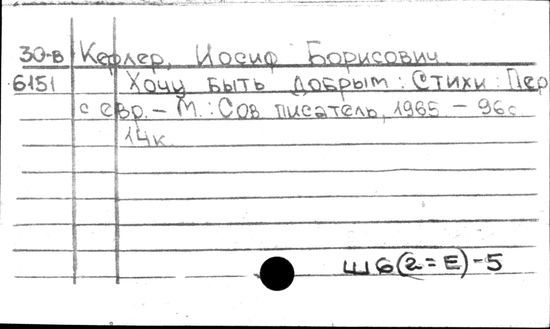 30-в Кефлер, Иосиф Борисович.
6151 Хочу быть добрым: Стихи: Пер
с евр. – М.: Сов писатель, 1965 – 96с
14к
Ш6(2=Е)-5